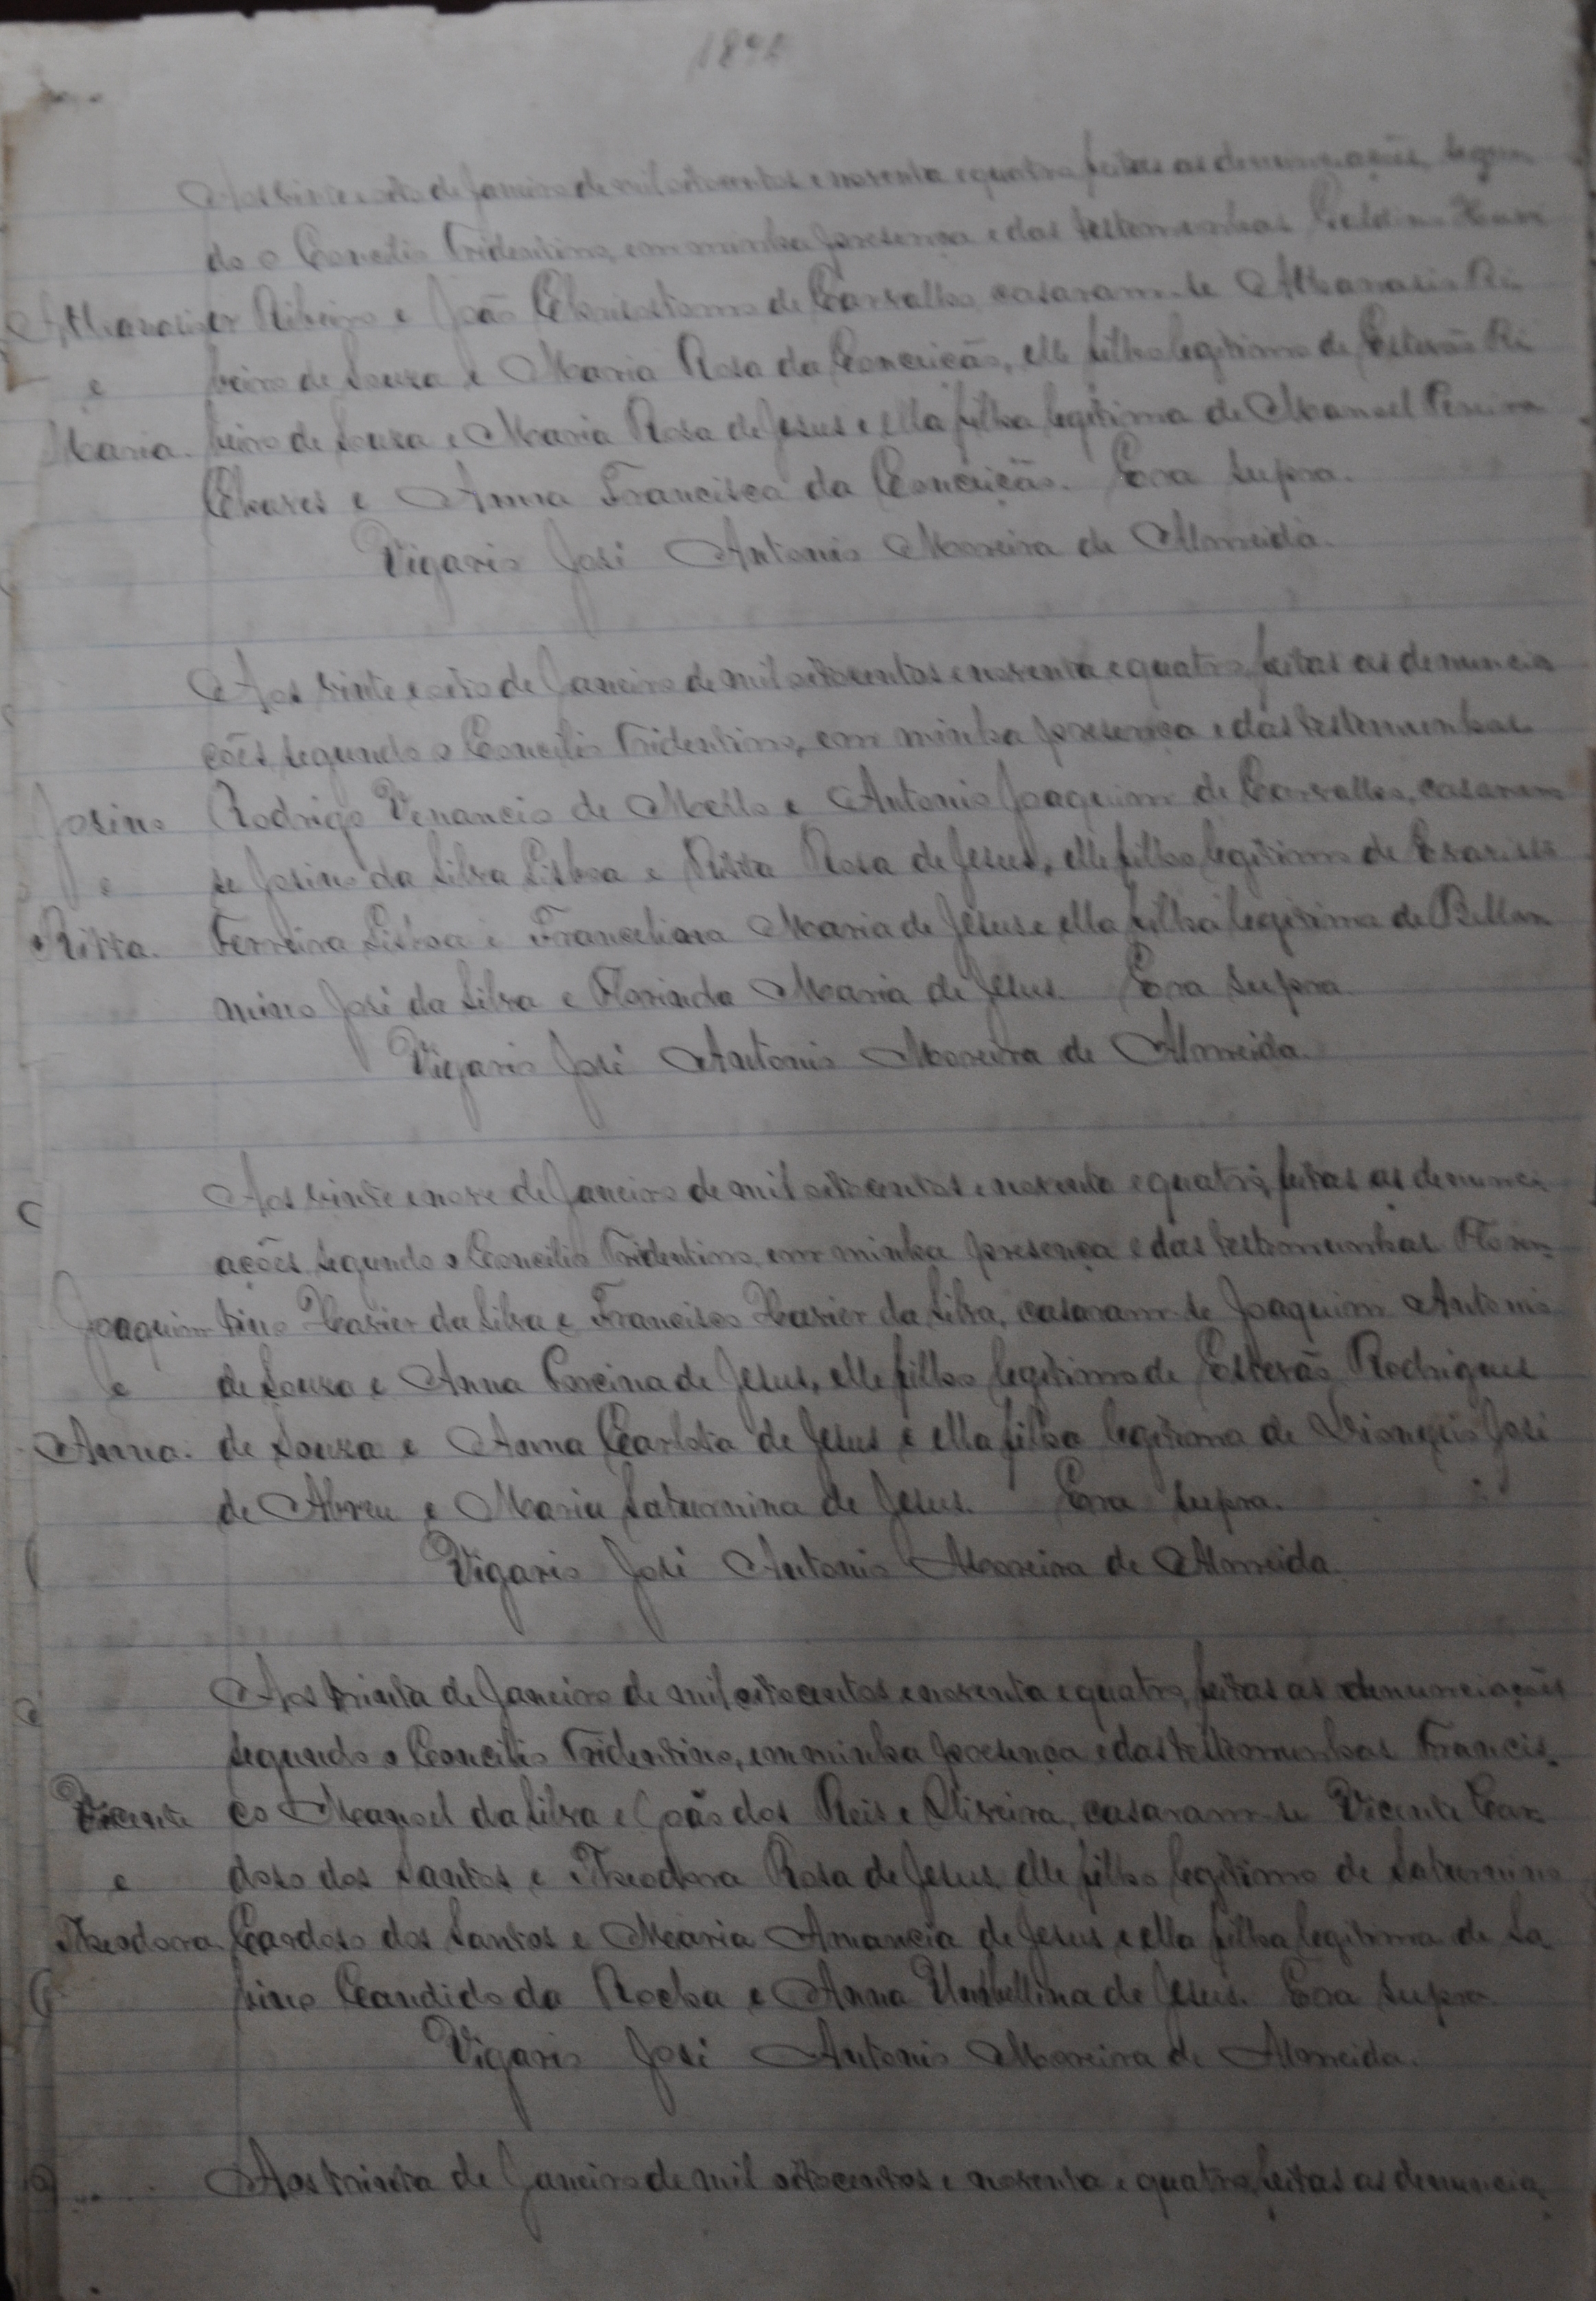 1894
Aos vinte e oito de Janeiro de mil oitocentos e noventa e quatro, feitas as denunciações, segun
do o Concilio Tridentino, em minha presença e das testemunhas
Athanasio er Ribeiro e João Chrisostomo de Carvalho, casaram-se Athanasio Ri
e beiro de Souza e Maria Rosa da Conceição, elle filho legitimo de Estevão Ri
Maria. beiro de Souza e Maria Rosa de Jesus e ella filha legitima de Manoel Pereira
Chaves e Anna Francisca da Conceição. Era supra.
Vigario José Antonio Moreira de Almeida.
Aos vinte e oito de Janeiro de mil oitocentos e noventa e quatro, feitas as denuncia
ções, segundo o Concilio Tridentino, em minha presença e das testemunhas
Josino Rodrigo Venancio de Mello e Antonio Joaquim de Carvalho, casaram
e se Josino da Silva Lisboa e Ritta Rosa de Jesus, elle filho legitimo de Evaristo
Ritta. Ferreira Lisboa e Franceliana Maria de Jesus e ella filha legitima de Bellar
mino José da Silva e Florinda Maria de Jesus. Era supra.
Vigario José Antonio Moreira de Almeida.
Aos vinte e nove de Janeiro de mil oitocentos e noventa e quatro, feitas as denunci
ações, segundo o Concilio Tridentino, em minha presença e das testemunhas Floren
Joaquim tino Xavier da Silva e Francisco Xavier da Silva, casaram-se Joaquim Antonio
e de Souza e Anna Porcina de Jesus, elle filho legitimo de Estevão Rodrigues
Anna. de Souza e Anna Carlota de Jesus e ella filha legitima de Dionysio José
de Abreu e Maria Saturnina de Jesus. Era supra.
Vigario José Antonio Moreira de Almeida.
Aos trinta de Janeiro de mil oitocentos e noventa e quatro, feitas as denunciações
segundo o Concilio Tridentino, em minha presença e das testemunhas Francis-
Vicente co Manoel da Silva e João dos Reis e Oliveira, casaram-se Vicente Car
e doso dos Santos e Theodora Rosa de Jesus, elle filho legitimo de Saturnino
Theodora Cardoso dos Santos e Maria Amancia de Jesus e ella filha legitima de Sa
bino Candido da Rocha e Anna Umbellina de Jesus. Era supra.
Vigario José Antonio Moreira de Almeida.
Aos trinta de Janeiro de mil oitocentos e noventa e quatro, feitas as denuncia